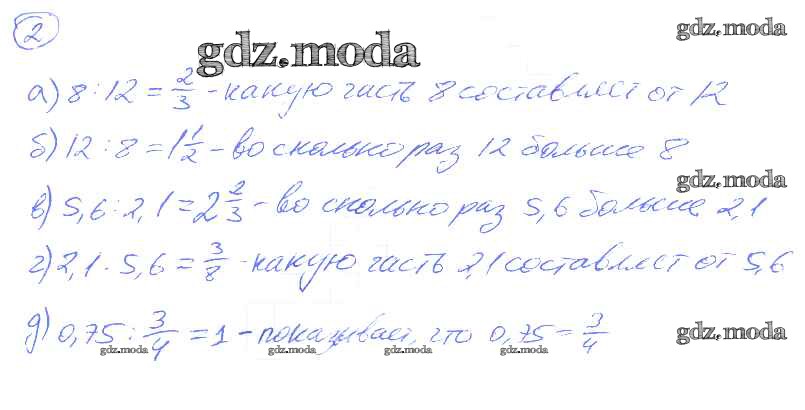 2
gdz.moda
gdz.moda
а) 8 : 12 = 2/3 - какую часть 8 составляет от 12
б) 12 : 8 = 1 1/2 - во сколько раз 12 больше 8
gdz.moda
в) 5,6 : 2,1 = 2 2/3 - во сколько раз 5,6 больше 2,1
г) 2,1 : 5,6 = 3/8 - какую часть 2,1 составляет от 5,6
д) 0,75 : 3/4 = 1 - показывает, что 0,75 = 3/4
gdz.moda
gdz.moda gdz.moda gdz.moda